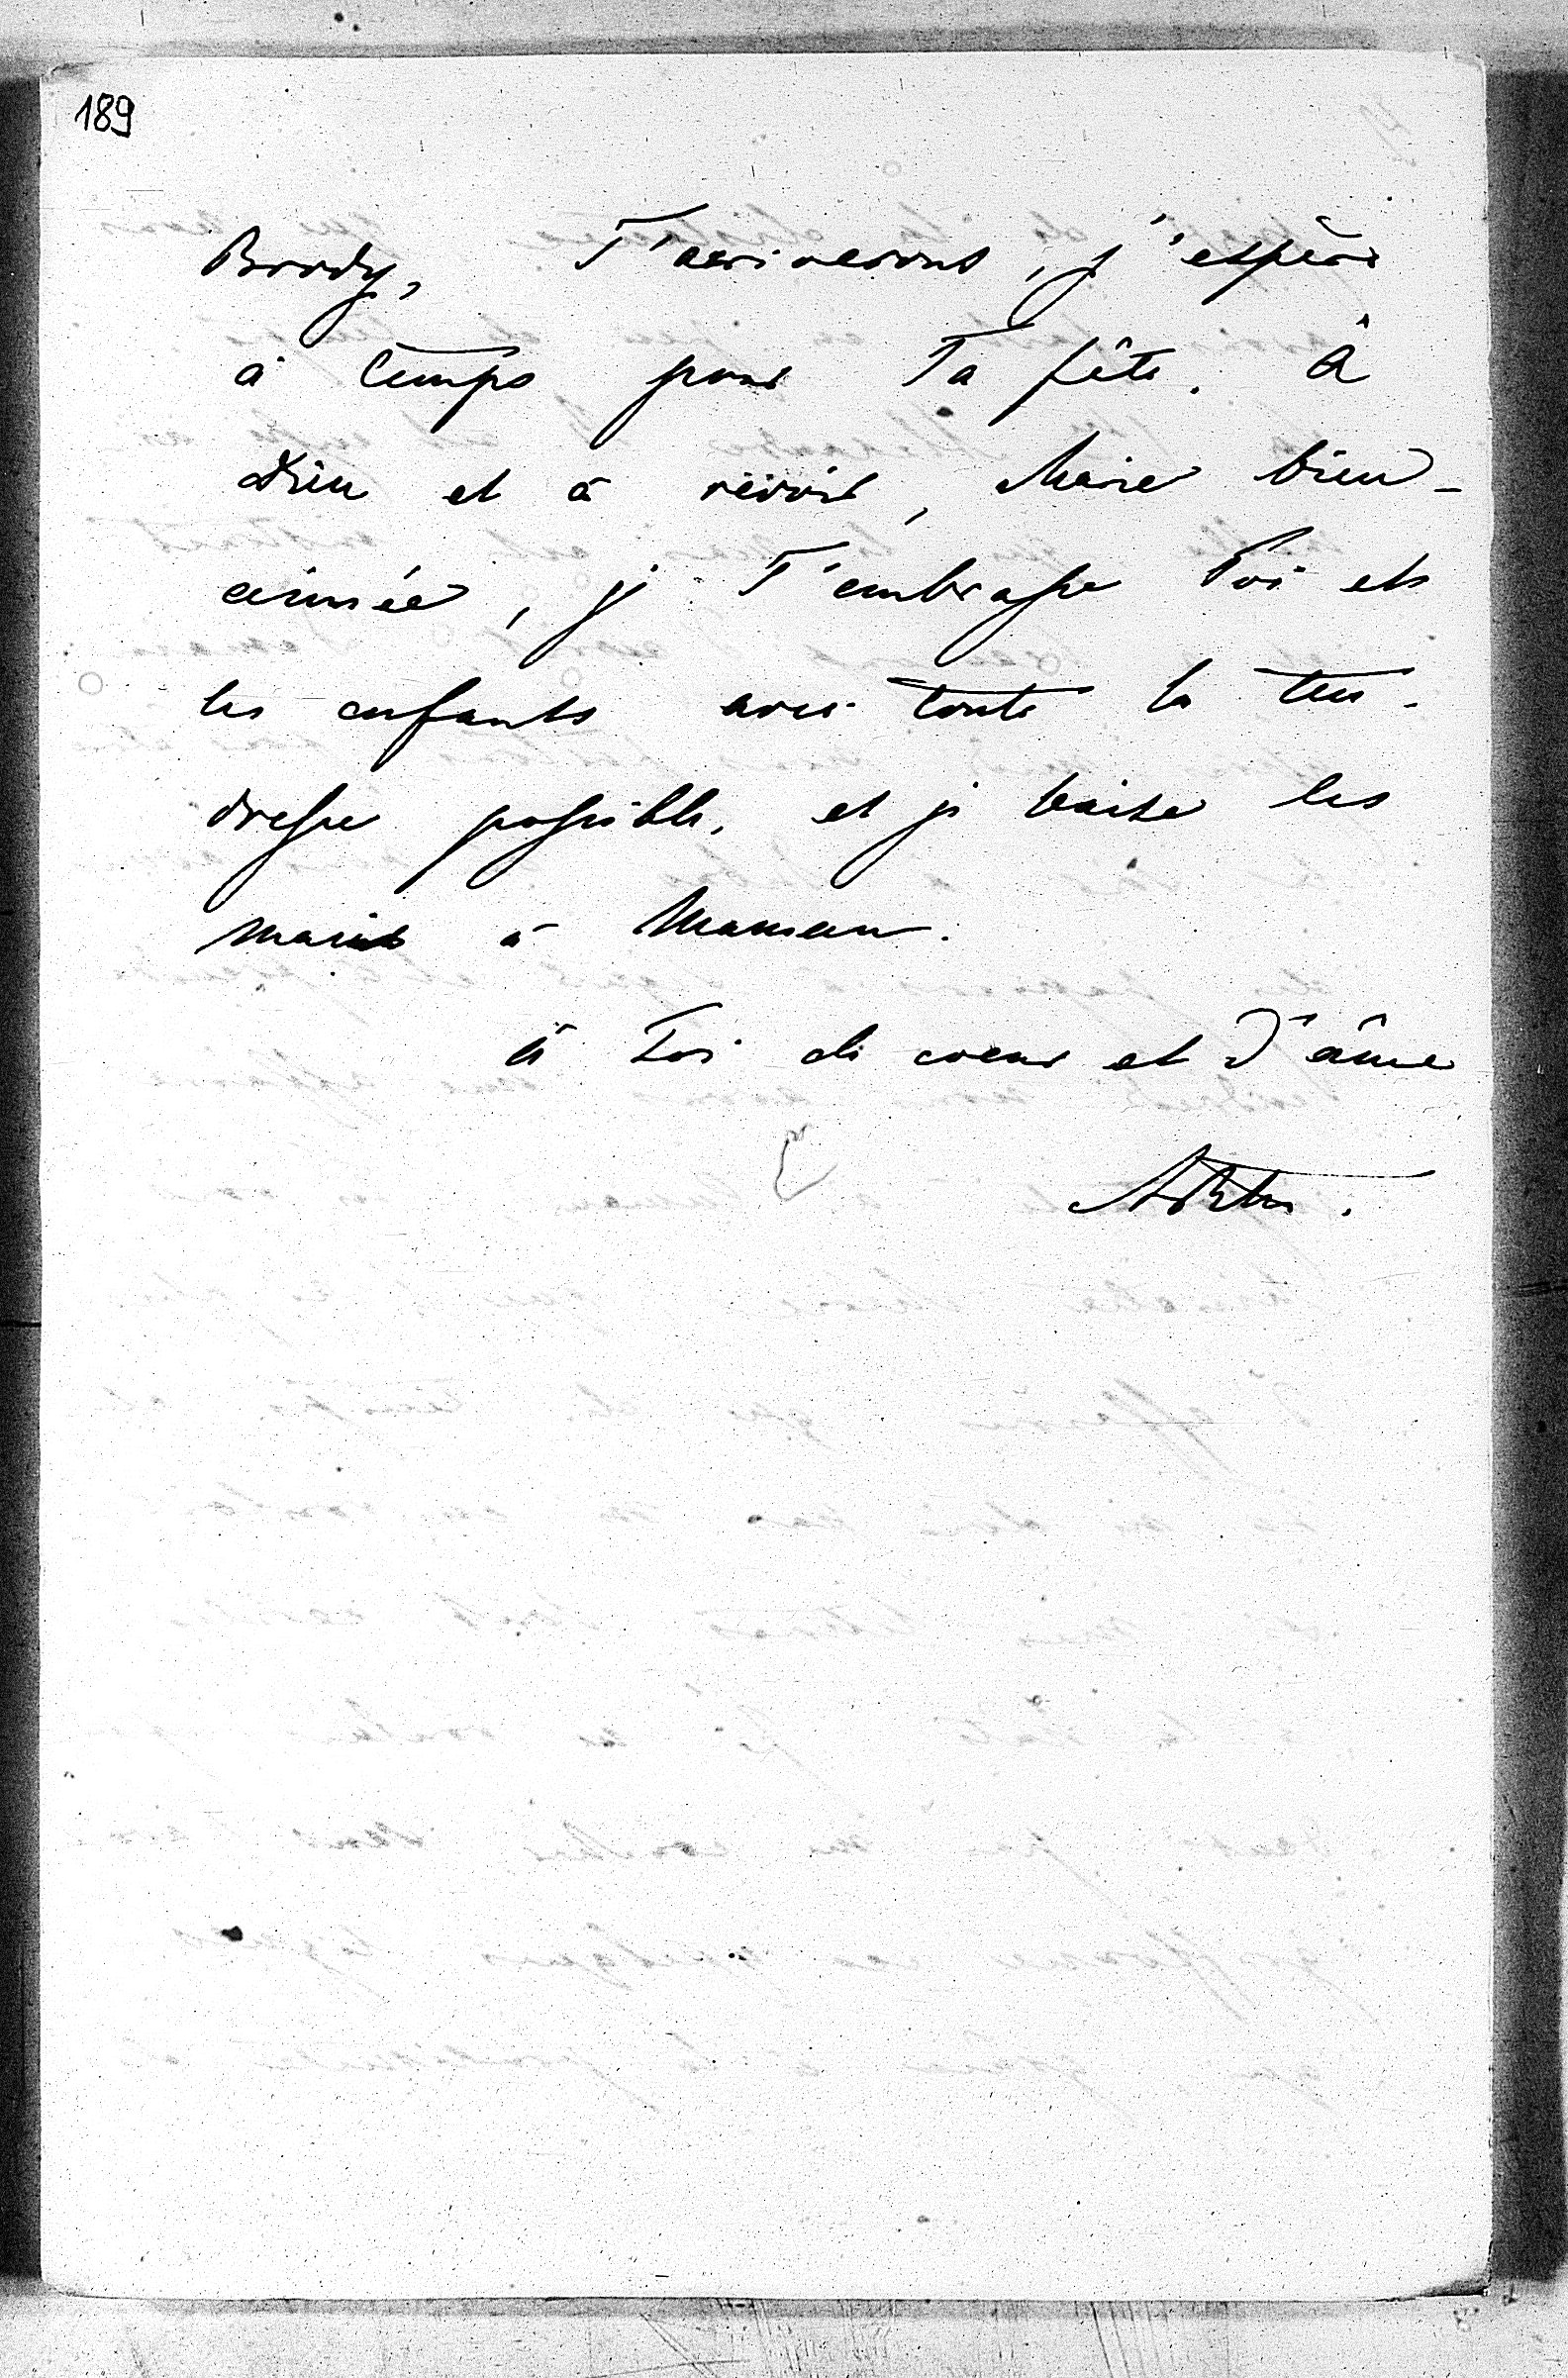 189
Brody, T'arriveront, j'espère
à temps pour Ta fête. À
Dieu et à révoir, Marie bien-
aimée, je T'embrasse Toi et
les enfants avec toute la ten-
dresse possible, et je baise les
mains à Maman.
à Toi de coeur et d'âme